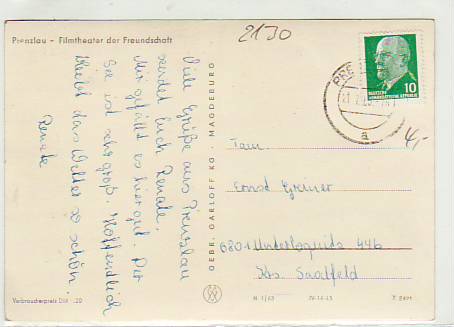 Prenzlau – Filmtheater der Freundschaft
2130
Viele Grüße aus Prenzlau
sendet Euch Renate.
Mir gefällt es hier gut. Der
See ist sehr groß. Hoffentlich
bleibt das Wetter so schön.
Renate
GEBR. GARLOFF KG · MAGDEBURG
PRE
10
DEUTSCHE
DEMOKRATISCHE REPUBLIK
a
4,-
Fam.
Ernst Greiner
6801 Unterloquitz 44b
Krs. Saalfeld
Verbraucherpreis DM -,20